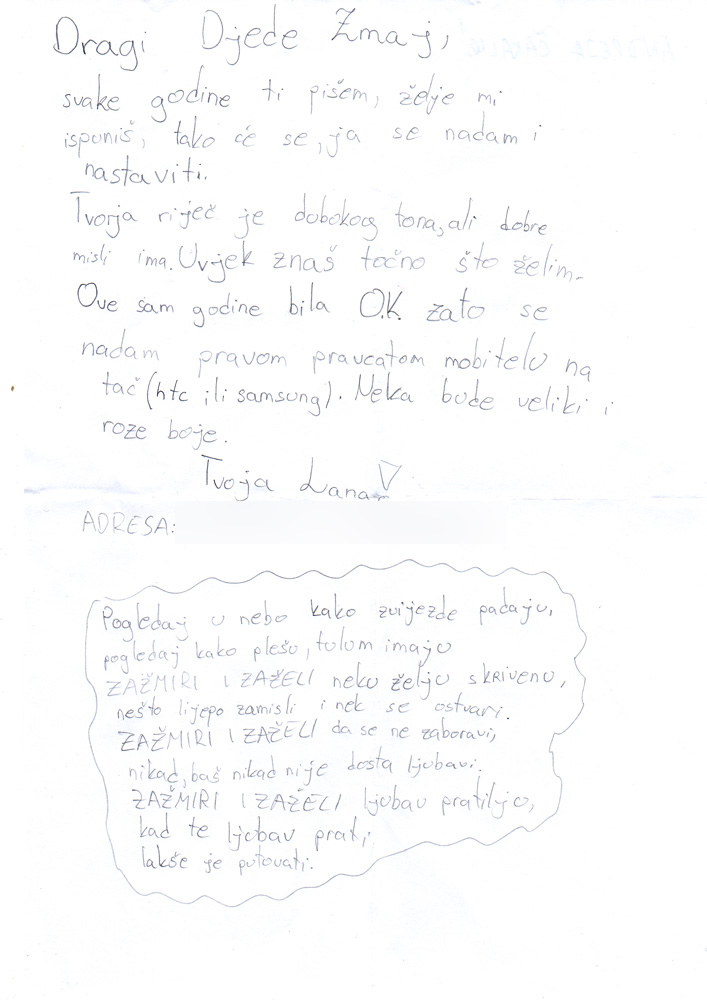 Dragi Djede Zmaj,
svake godine ti pišem, želje mi
ispuniš, tako će se, ja se nadam i
nastaviti.
Tvorja riječ je dobokog tona, ali dobre
misli ima. Uvjek znaš točno što želim.
Ove sam godine bila O.K. zato se
nadam pravom pravcatom mobitelu na
tač (htc ili samsung). Neka bude veliki i
roze boje.
Tvoja Lana
ADRESA:
Pogledaj u nebo kako zvijezde padaju,
pogledaj kako plešu, tulum imaju
ZAŽMIRI I ZAŽELI neku želju skrivenu,
nešto lijepo zamisli i nek se ostvari.
ZAŽMIRI I ZAŽELI da se ne zaboravi,
nikad, baš nikad nije dosta ljubavi.
ZAŽMIRI I ZAŽELI ljubav pratilju,
kad te ljubav prati,
lakše je putovati.